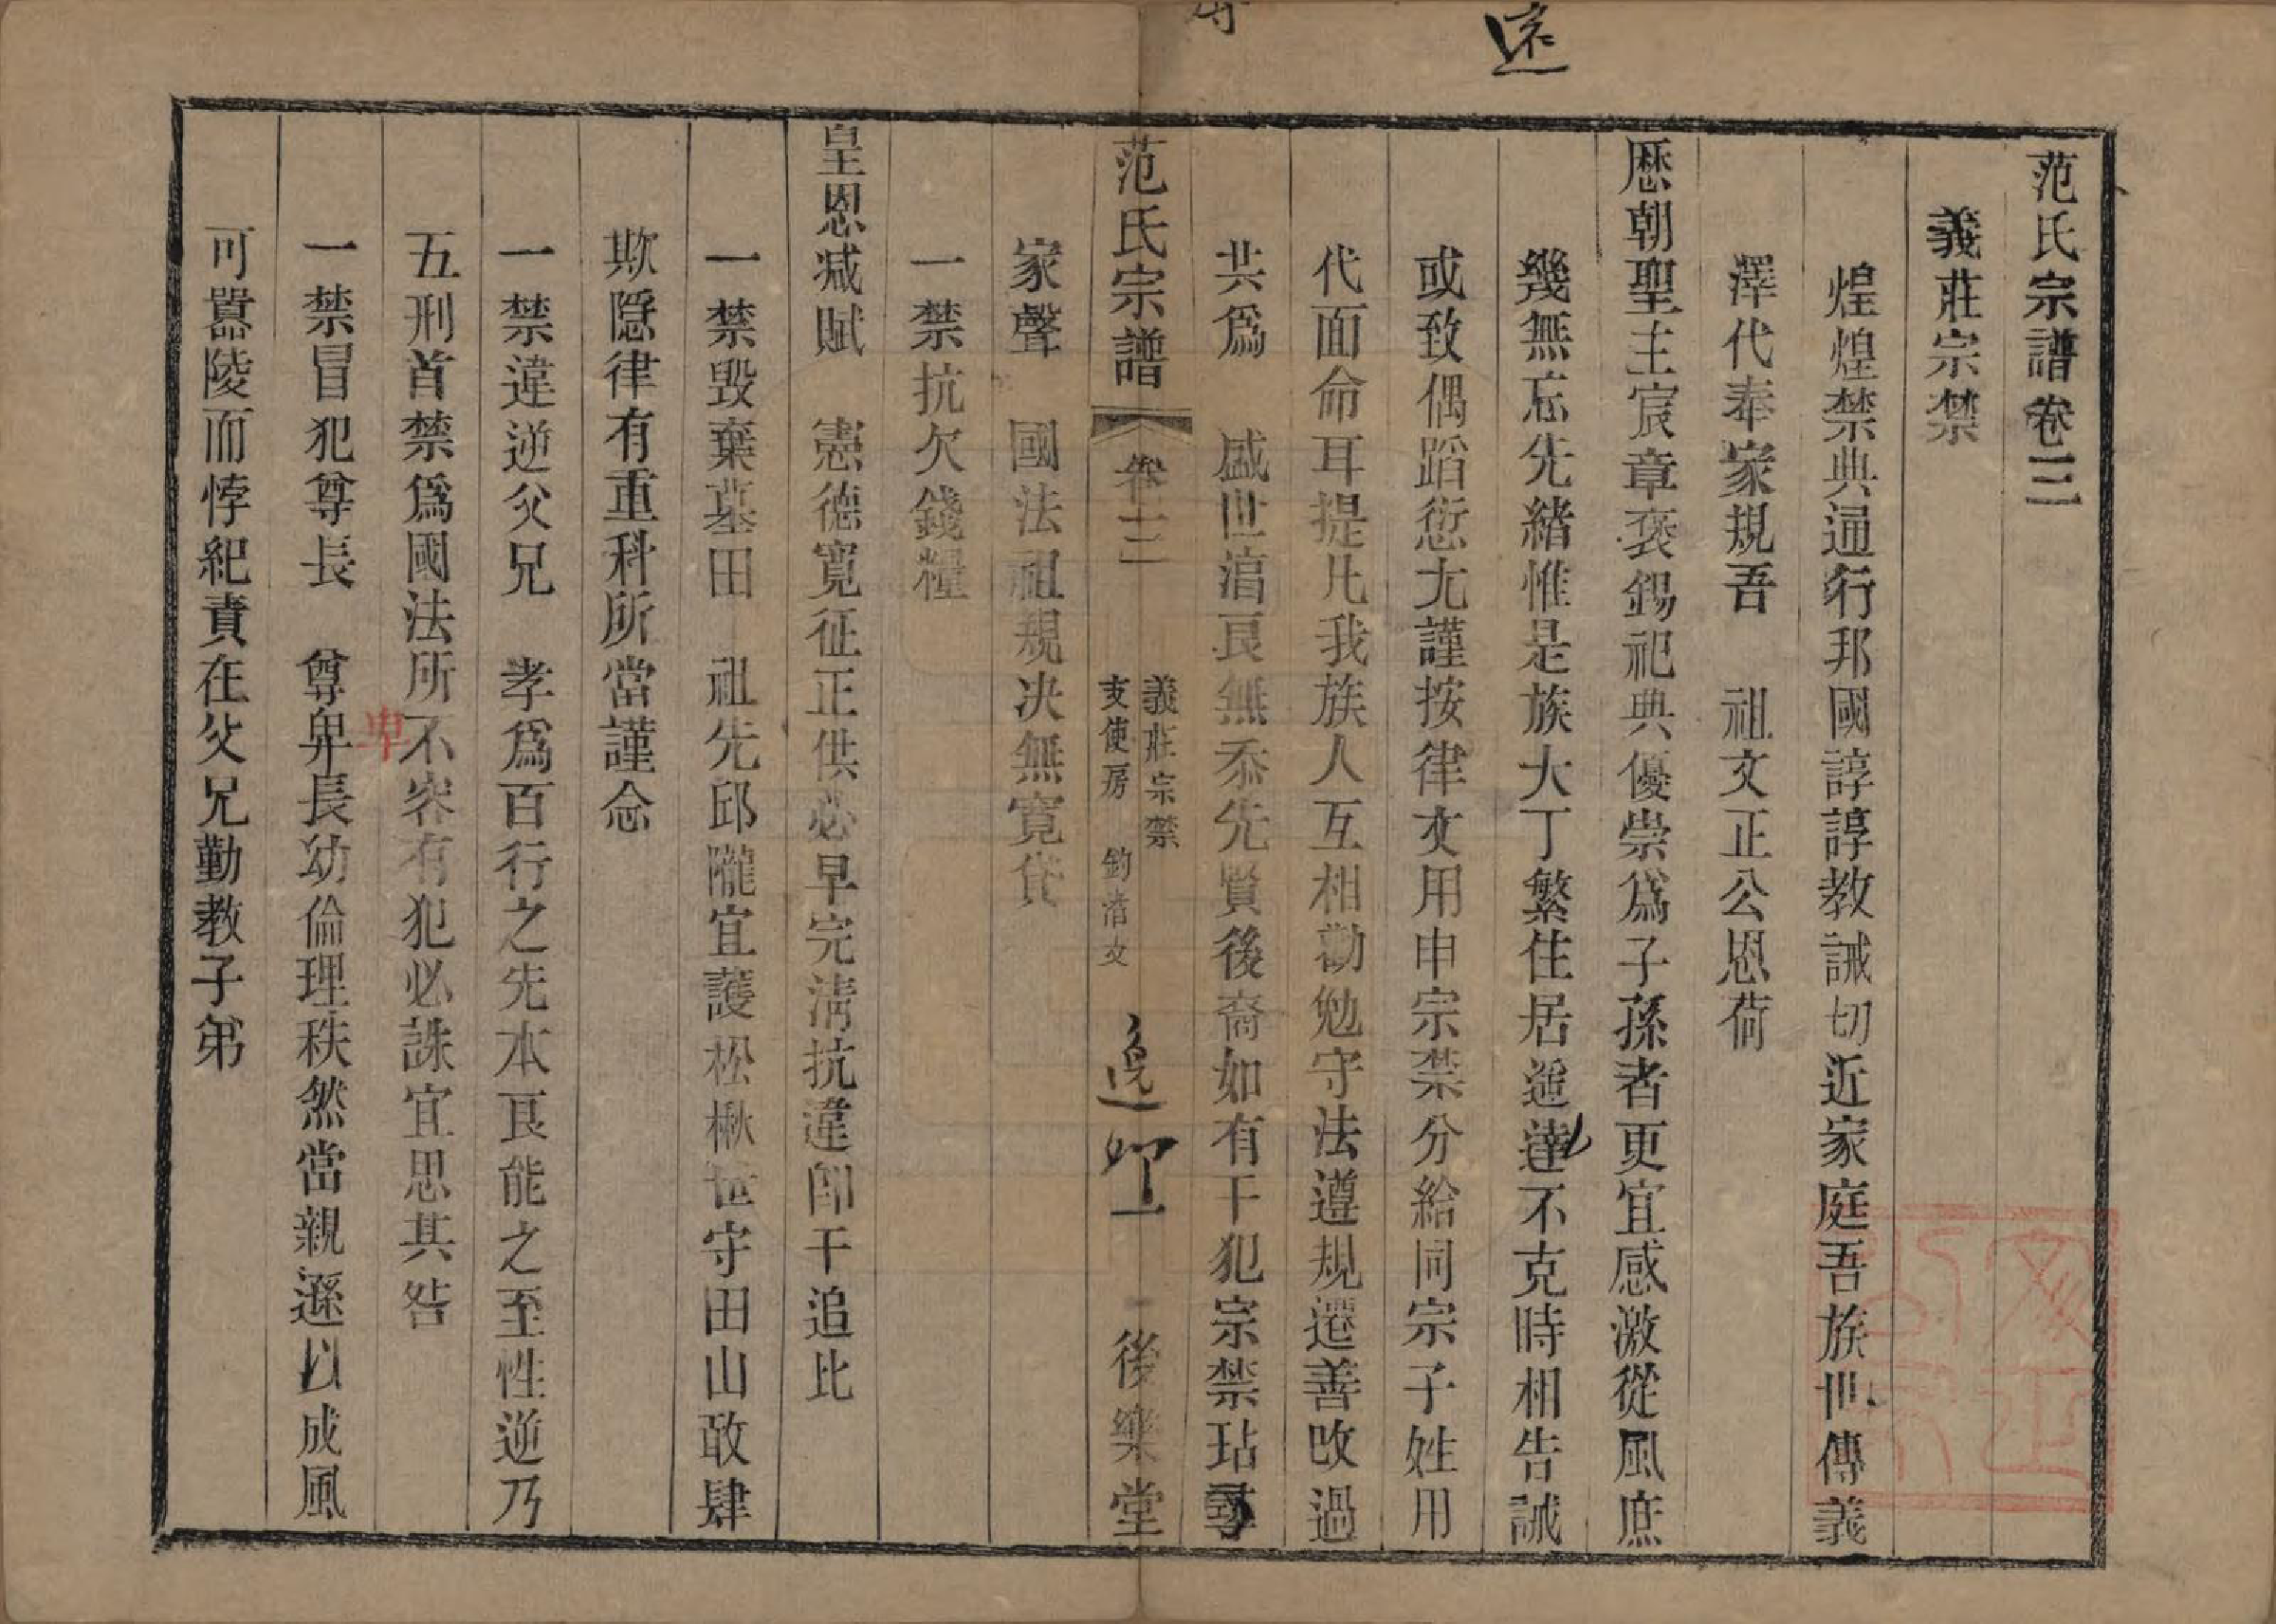 遠
范氏宗譜卷三
義莊宗禁
煌煌禁典通行邦國諄諄教誡切近家庭吾族世傳義
澤代奉家規吾 祖文正公恩荷
歷朝聖主宸章褒錫祀典優崇爲子孫者更宜感激從風庶
幾無忘先緒惟是族大丁繁住居遥達不克時相告誡
或致偶蹈愆尤謹按律文用申宗禁分給同宗子姓用
代面命耳提凡我族人互相勸勉守法遵規遷善改過
共爲 盛世涫良無忝先賢後裔如有干犯宗禁玷
范氏宗譜 卷三 義莊宗禁 支使房 鈞清支 後樂堂
家聲 國法祖規决無寬貸
一禁抗欠錢糧
皇恩减賦 憲德寬征正供必早完淸抗違卽干追比
一禁毀棄墓田 祖先邱隴宜護松楸世守田山敢肆
欺隱律有重科所當謹念
一禁違逆父兄 孝爲百行之先本良能之至性逆乃
五刑首禁爲國法所不容有犯必誅宜思其咎
卑
一禁冒犯尊長 尊卑長幼倫理秩然當親遜以成風
可囂陵而悖紀責在父兄勤教子弟